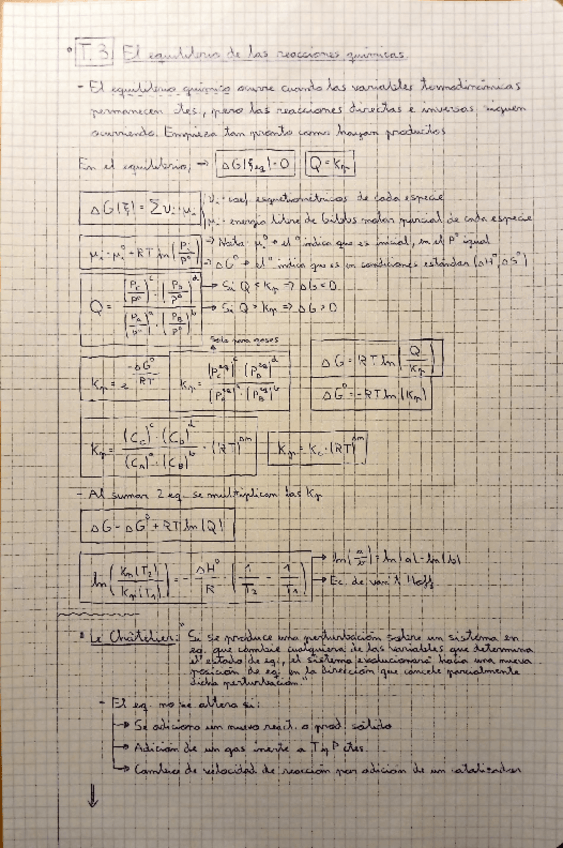 T. 3. El equilibrio de las reacciones químicas.
- El equilibrio químico ocurre cuando las variables termodinámicas
permanecen ctes, pero las reacciones directas e inversas siguen
ocurriendo. Empieza tan pronto como hayan productos
En el equilibrio, → ΔG(ξeq) = 0 Q = Kp
ΔG(ξ) = Σ νi · μi
νi · coef. estequiométricos de cada especie
μi · energía libre de Gibbs molar parcial de cada especie
μi = μi° + RT ln(Pi/P°)
→ Nota: μi° → el ° indica que es inicial, en el P° igual
→ ΔG° → el ° indica que es en condiciones estándar (ΔH°, ΔS°)
Q = (Pc/P°)^c · (PD/P°)^d / (PA/P°)^a · (PB/P°)^b
→ Si Q < Kp ⇒ ΔG < 0
→ Si Q > Kp ⇒ ΔG > 0
Solo para gases
Kp = e^(-ΔG°/RT)
Kp = (Pc^eq)^c · (PD^eq)^d / (PA^eq)^a · (PB^eq)^b
ΔG = RT ln(Q/Kp)
ΔG° = -RT ln(Kp)
Kp = (Cc)^c · (CD)^d / (CA)^a · (CB)^b · (RT)^Δn
Kp = Kc · (RT)^Δn
- Al sumar 2 eq. se multiplican las Kp
ΔG = ΔG° + RT ln(Q)
ln(Kp(T2)/Kp(T1)) = - ΔH°/R · (1/T2 - 1/T1)
→ ln(a/b) = ln(a) - ln(b)
→ Ec. de van't Hoff
Le Châtelier: "Si se produce una perturbación sobre un sistema en
eq. que cambie cualquiera de las variables que determina
el estado de eq., el sistema evolucionará hacia una nueva
posición de eq. en la dirección que cancele parcialmente
dicha perturbación."
- El eq. no se altera si:
→ Se adiciona un nuevo react. o prod. sólido
→ Adición de un gas inerte a T y P ctes.
→ Cambio de velocidad de reacción por adición de un catalizador